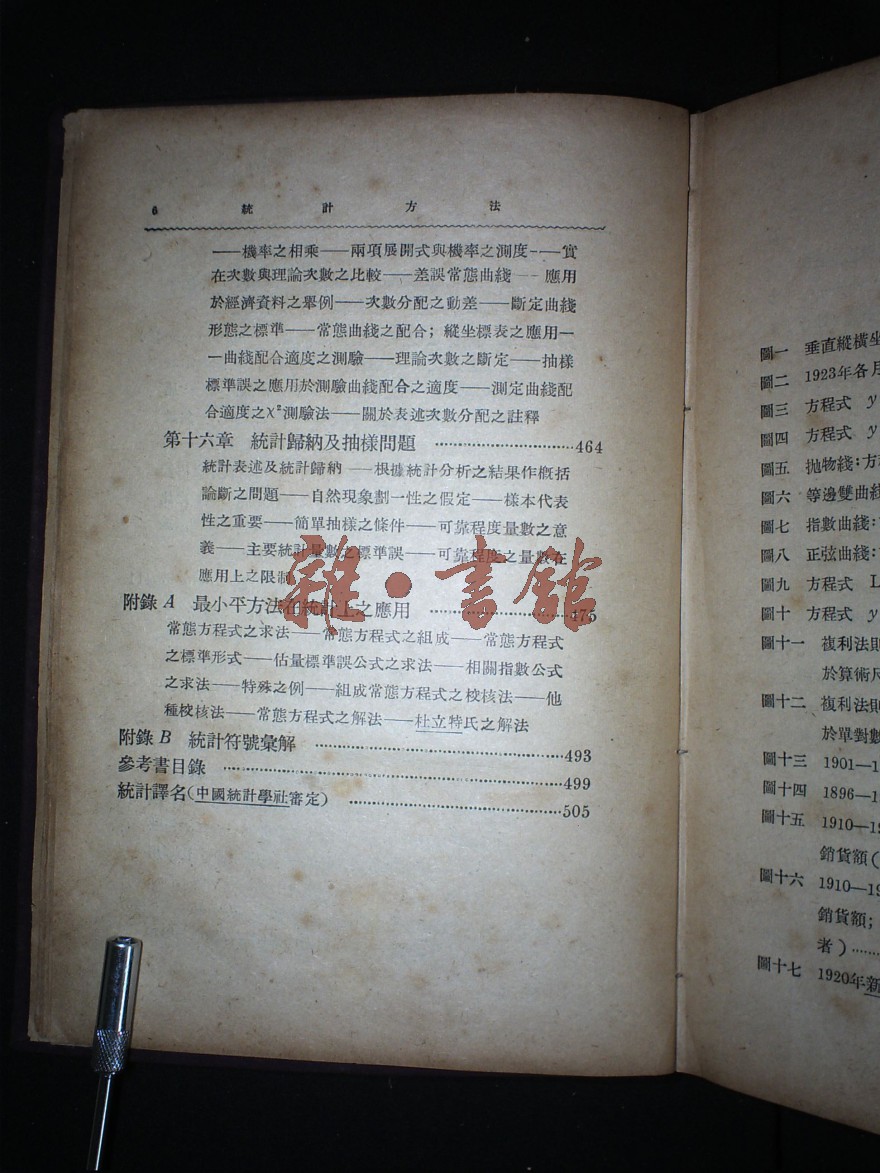 6 統計方法
——機率之相乘——兩項展開式與機率之測度——實
在次數與理論次數之比較——差誤常態曲綫——應用
於經濟資料之舉例——次數分配之動差——斷定曲綫
形態之標準——常態曲綫之配合；縱坐標表之應用—
—曲綫配合適度之測驗——理論次數之斷定——抽樣
標準誤之應用於測驗曲綫配合之適度——測定曲綫配
合適度之χ²測驗法——關於表述次數分配之註釋
第十六章 統計歸納及抽樣問題 ……464
統計表述及統計歸納——根據統計分析之結果作概括
論斷之問題——自然現象劃一性之假定——樣本代表
性之重要——簡單抽樣之條件——可靠程度量數之意
義——主要統計量數之標準誤——可靠程度之量數在
應用上之限制
雜·書館
附錄A 最小平方法在統計上之應用 ……475
常態方程式之求法——常態方程式之組成——常態方程式
之標準形式——估量標準誤公式之求法——相關指數公式
之求法——特殊之例——組成常態方程式之校核法——他
種校核法——常態方程式之解法——杜立特氏之解法
附錄B 統計符號彙解 ……493
參考書目錄 ……499
統計譯名(中國統計學社審定) ……505
圖一 垂直縱橫坐
圖二 1923年各月
圖三 方程式 y
圖四 方程式 y
圖五 拋物綫：方
圖六 等邊雙曲綫
圖七 指數曲綫：
圖八 正弦曲綫：
圖九 方程式 L
圖十 方程式 y
圖十一 複利法則
於算術尺
圖十二 複利法則
於單對數
圖十三 1901—1
圖十四 1896—1
圖十五 1910—19
銷貨額(
圖十六 1910—19
銷貨額；
者)……
圖十七 1920年新